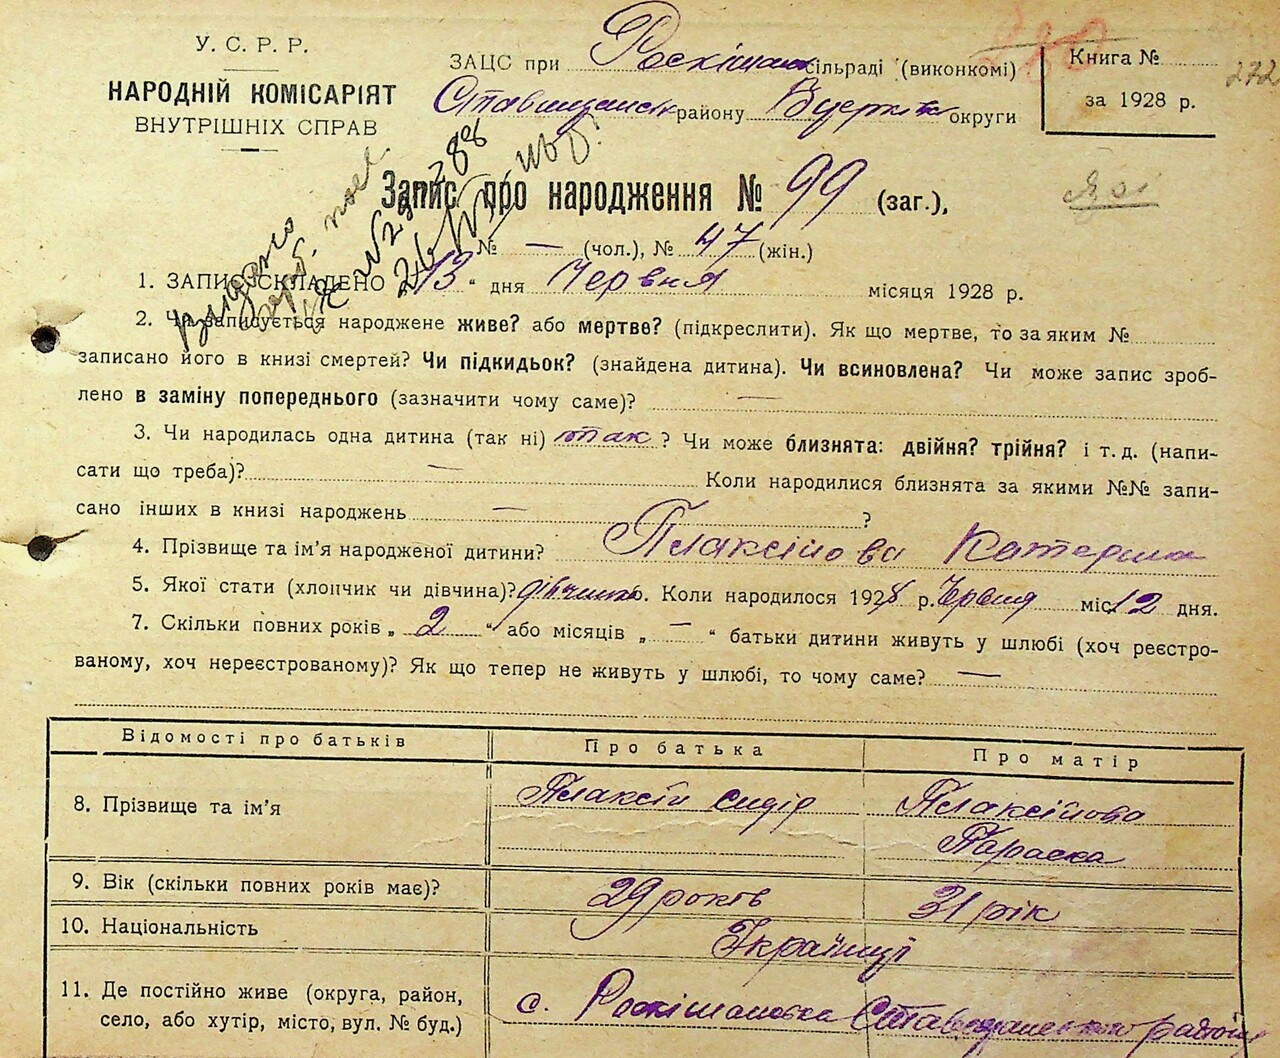 У. С. Р. Р.
НАРОДНІЙ КОМІСАРІЯТ
ВНУТРІШНІХ СПРАВ
ЗАЦС при сільраді (виконкомі)
району округи
Книга №
за 1928 р.
272
Запис про народження № 99 (заг.),
№ — (чол.), № 47 (жін.)
1. ЗАПИС СКЛАДЕНО „13“ дня Червня місяця 1928 р.
2. Чи записується народжене живе? або мертве? (підкреслити). Як що мертве, то за яким №
записано його в книзі смертей? Чи підкидьок? (знайдена дитина). Чи всиновлена? Чи може запис зроб-
лено в заміну попереднього (зазначити чому саме)? —
3. Чи народилась одна дитина (так ні) так ? Чи може близнята: двійня? трійня? і т. д. (напи-
сати що треба)? — Коли народилися близнята за якими №№ запи-
сано інших в книзі народжень — ?
4. Прізвище та ім’я народженої дитини? Плаксійова Катерина
5. Якої стати (хлопчик чи дівчина)? дівчина. Коли народилося 1928 р. Червня міс. 12 дня.
7. Скільки повних років „ 2 “ або місяців „ — “ батьки дитини живуть у шлюбі (хоч реєстро-
ваному, хоч нереєстрованому)? Як що тепер не живуть у шлюбі, то чому саме? —
Відомості про батьків Про батька Про матір
8. Прізвище та ім’я Плаксій Сидір Плаксійова
Параска
9. Вік (скільки повних років має)? 29 років 31 рік
10. Національність Українці
11. Де постійно живе (округа, район,
село, або хутір, місто, вул. № буд.) с. Роскішановка Ставищанського району